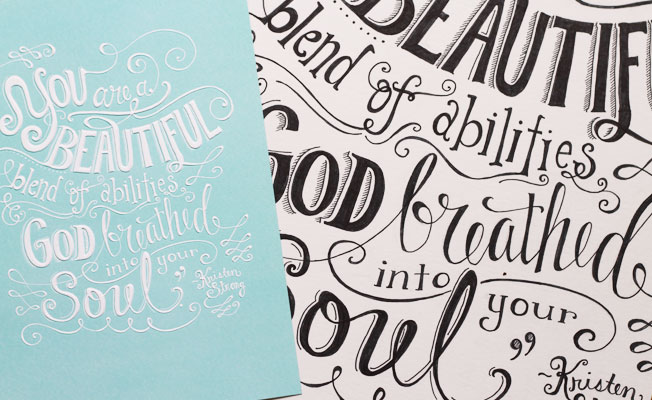 You are a
BEAUTIFUL
blend of abilities
GOD breathed
into your
Soul”
~Kristen
Strong
BEAUTIFU
blend of abilities
GOD breathed
into your
Soul”
~Kristen